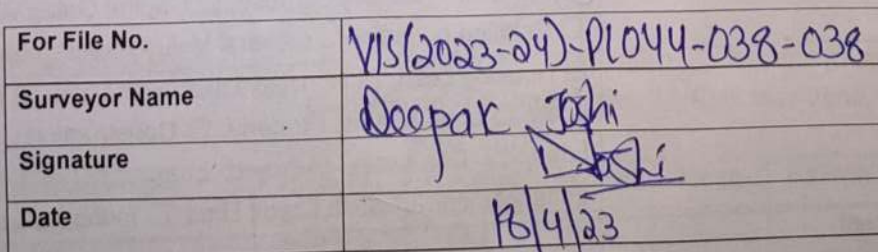 For File No. VIS(2023-24)-PL044-038-038
Surveyor Name Deepak Joshi
Signature Joshi
Date 18/4/23